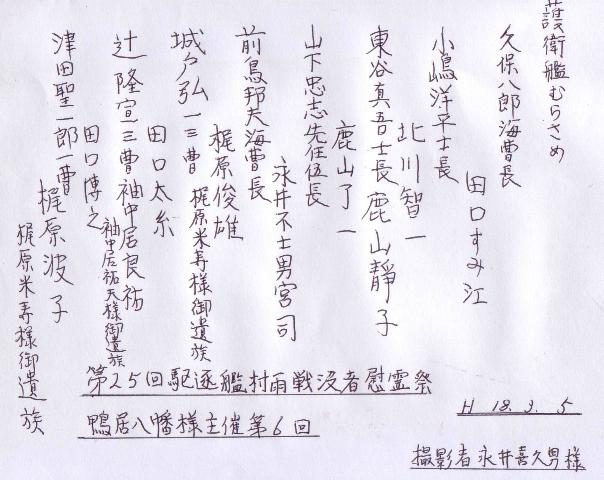 護衛艦むらさめ
久保八郎海曹長
田口すみ江
小嶋洋平士長
北川智一
東谷真吾士長
鹿山靜子
鹿山了一
山下忠志先任伍長
永井不士男宮司
前鳥邦夫海曹長
梶原俊雄
梶原米寿様御遺族
城戸弘一三曹
田口太糸
辻隆宣三曹
袖中居良祐
袖中居祐天様御遺族
田口博之
津田聖一郎一曹
梶原波子
梶原米寿様御遺族
第25回駆逐艦村雨戦没者慰霊祭
鴨居八幡様主催第6回
H 18.3.5
撮影者永井喜久男様